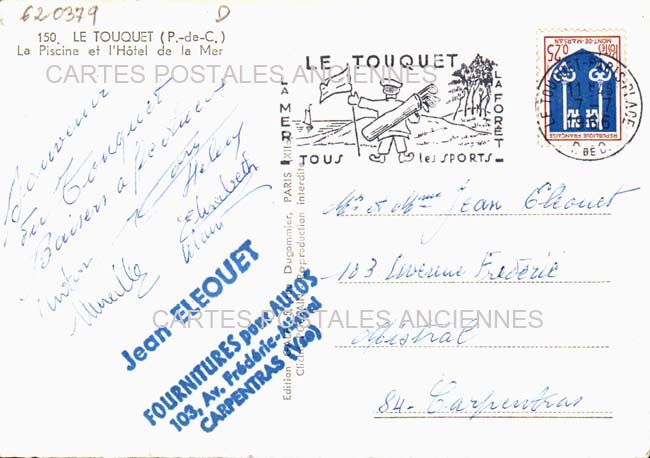 620379 D
150. LE TOUQUET (P.-de-C.)
La Piscine et l'Hôtel de la Mer
CARTES POSTALES ANCIENNES
LE TOUQUET
LA MER
LA FORÊT
TOUS les SPORTS
LE TOUQUET-PARIS-PLAGE
P. DE C.
0,25
MONT-DE-MARSAN
REPUBLIQUE FRANÇAISE
Souvenir
du Touquet
Baisers à
Hélène
Elisabeth
Alain
Mireille
Edition Dugommier, PARIS
Reproduction interdite
Mr et Mme Jean Eleouet
103 Avenue Frédéric
Mistral
84 - Carpentras
Jean ELEOUET
FOURNITURES pour AUTOS
103, Av. Frédéric-Mistral
CARPENTRAS (Vse)
CARTES POSTALES ANCIENNES